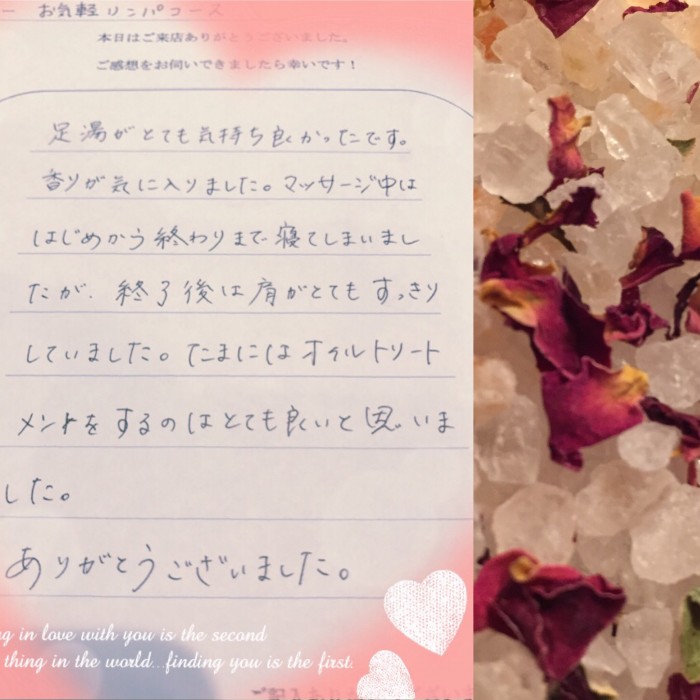 ー お気軽リンパコース
本日はご来店ありがとうございました。
ご感想をお伺いできましたら幸いです！
足湯がとても気持ち良かったです。
香りが気に入りました。マッサージ中は
はじめから終わりまで寝てしまいまし
たが、終了後は肩がとてもすっきり
していました。たまにはオイルトリート
メントをするのはとても良いと思いま
した。
ありがとうございました。
ng in love with you is the second
thing in the world...finding you is the first.